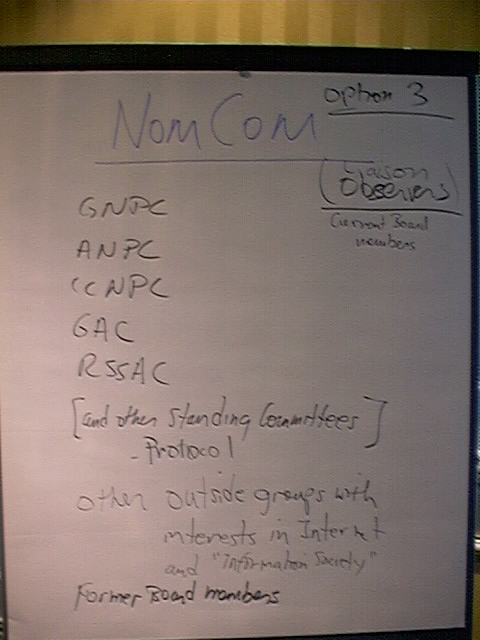 Option 3
NomCom
(Liaison
Observers)
Current Board
members
GNPC
ANPC
CCNPC
GAC
RSSAC
[and other Standing Committees]
- Protocol
other outside groups with
interests in Internet
and "Information Society"
Former Board members